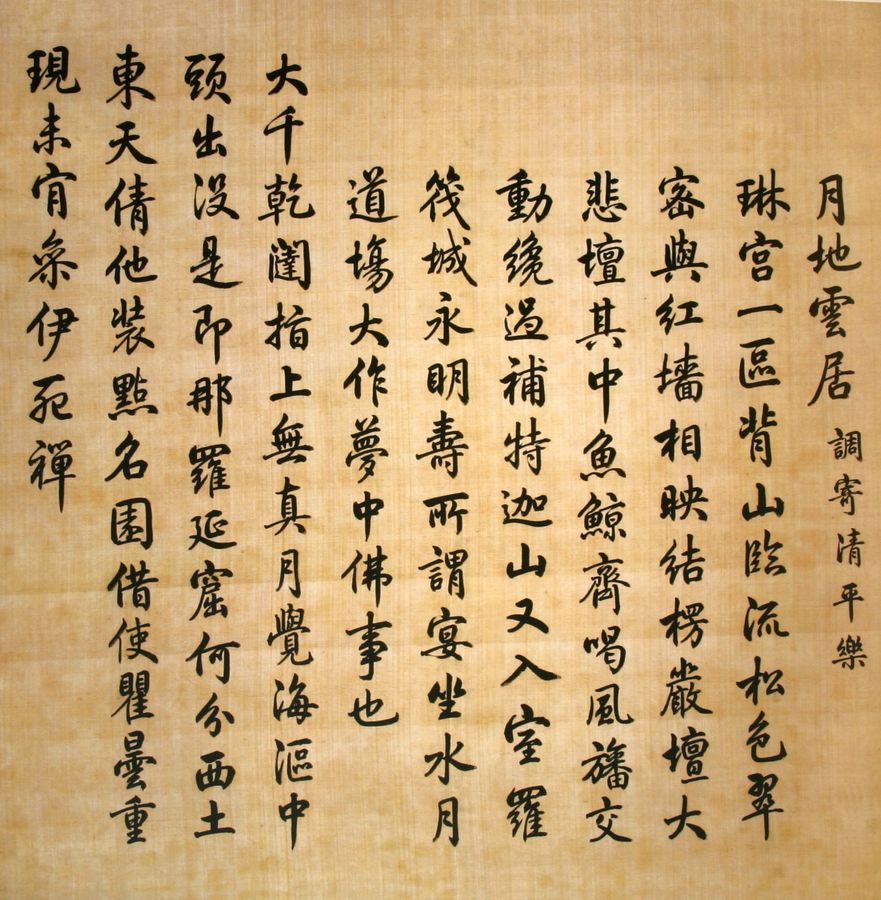 月地雲居 調寄清平樂
琳宫一區背山臨流松色翠
密與紅墻相映結楞嚴壇大
悲壇其中魚鯨齊喝風旛交
動纔過補特迦山又入室羅
筏城永明壽所謂宴坐水月
道塲大作夢中佛事也
大千乾闥指上無真月覺海漚中
頭出没是即那羅延窟何分西土
東天倩他裝點名園借使瞿曇重
現未肎叅伊死禪